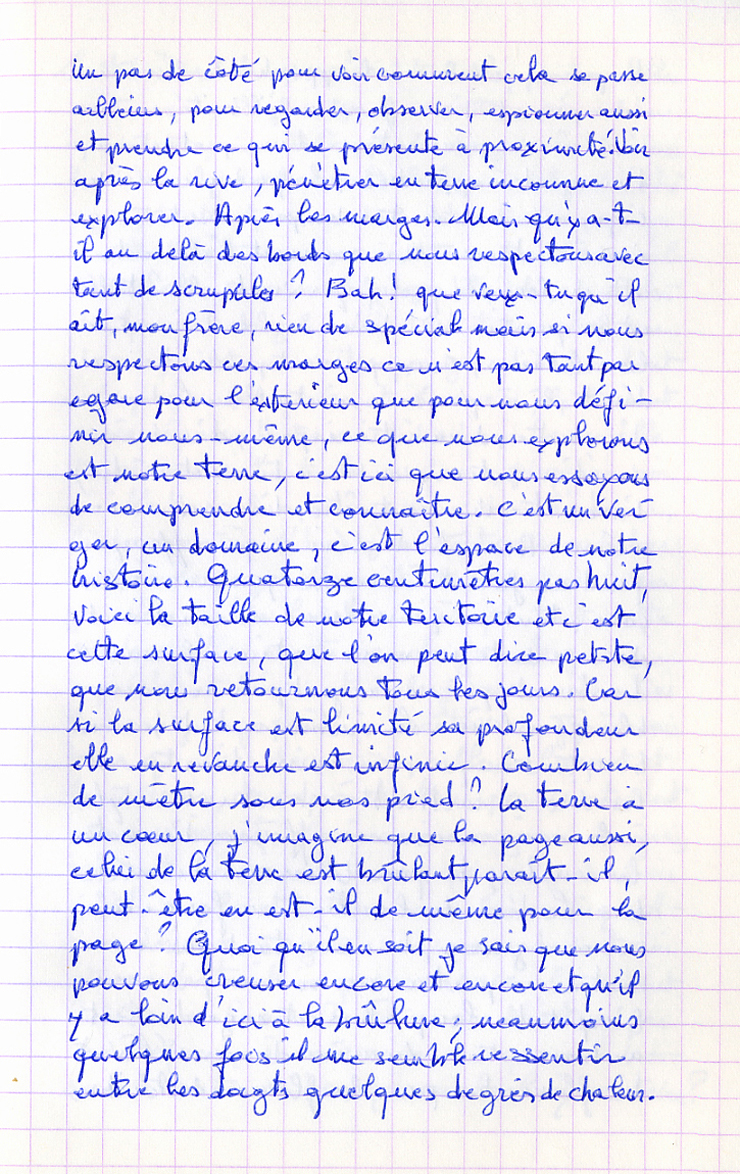 Un pas de côté pour voir comment cela se passe
ailleurs, pour regarder, observer, espionner aussi
et prendre ce qui se présente à proximité. Voir
après la rive, pénétrer en terre inconnue et
explorer. Après les marges. Mais qu'y a-t-
il au delà des bords que nous respectons avec
tant de scrupules ? Bah ! que veux-tu qu'il
ait, mon frère, rien de spécial mais si nous
respectons ces marges ce n'est pas tant par
egare pour l'exterieur que pour nous défi-
nir nous-même, ce que nous explorons
est notre terre, c'est ici que nous essayons
de comprendre et connaître. C'est un ver-
ger, un domaine, c'est l'espace de notre
histoire. Quatorze centimètres pas huit,
voici la taille de notre territoire et c'est
cette surface, que l'on peut dire petite,
que nous retournons tous les jours. Car
si la surface est limité sa profondeur
elle en revanche est infinie. Combien
de mètre sous nos pied ? La terre à
un cœur, j'imagine que la page aussi,
celui de la terre est brûlant, parait-il,
peut-être en est-il de même pour la
page ? Quoi qu'il en soit je sais que nous
pouvons creuser encore et encore et qu'il
y a loin d'ici à la brûlure ; neanmoins
quelques fois il me semble ressentir
entre les doigts quelques degrés de chaleur.